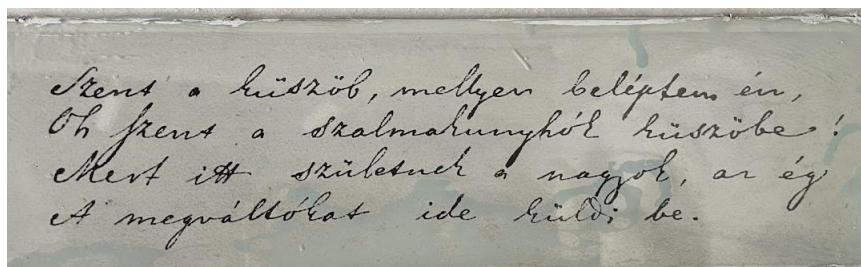 Szent a küszöb, mellyen beléptem én,
Oh szent a szalmakunyhók küszöbe!
Mert itt születnek a nagyok, az ég
A megváltókat ide küldi be.